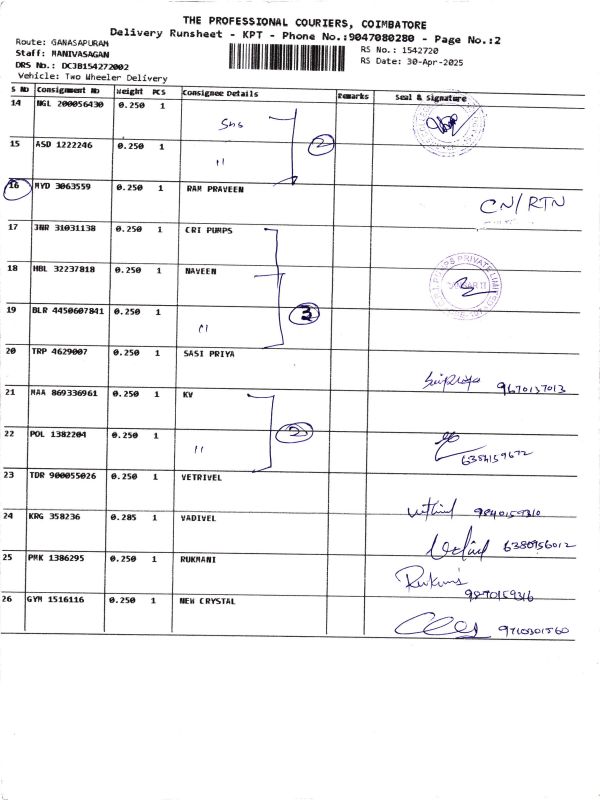 THE PROFESSIONAL COURIERS, COIMBATORE
Delivery Runsheet - KPT - Phone No.:9047080280 - Page No.:2
Route: GANASAPURAM
Staff: MANIVASAGAN
DRS No.: DCJB154272002
Vehicle: Two Wheeler Delivery
RS No.: 1542720
RS Date: 30-Apr-2025
S No Consignment No Weight PCS Consignee Details Remarks Seal & Signature
14 NGL 200056430 0.250 1 SMS
2
15 ASD 1222246 0.250 1 "
16 MYD 3063559 0.250 1 RAM PRAVEEN CN/RTN
17 JNR 31031138 0.250 1 CRI PUMPS
18 HBL 32237818 0.250 1 NAVEEN
3
19 BLR 4450607841 0.250 1 "
20 TRP 4629007 0.250 1 SASI PRIYA 9670137013
21 MAA 869336961 0.250 1 KV
2
22 POL 1382204 0.250 1 " 6384159672
23 TDR 900055026 0.250 1 VETRIVEL 9840159310
24 KRG 358236 0.285 1 VADIVEL 6380956012
25 PMK 1386295 0.250 1 RUKMANI 9870159316
26 GYM 1516116 0.250 1 NEW CRYSTAL 9710301560